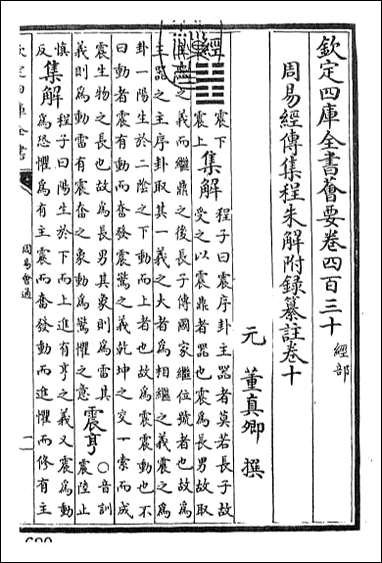 欽定四庫全書薈要卷四百三十 經部
周易經傳集程朱解附録纂註卷十
元 董真卿 撰
經 ䷲ 震下
震上 集解 程子曰震序卦主器者莫若長子故
受之以震鼎者器也震為長男故取
之義而繼鼎之後長子傳國家繼位號者也故為
主器之主序卦取其一義之大者為相繼之義震之為
卦一陽生於二陰之下動而上者也故為震震動也不
曰動者震有動而奮發震驚之義乾坤之交一索而成
震生物之長也故為長男其象則為雷其
義則為動雷有震奮之象動為驚懼之意 震亨 ○音訓
震陸止
慎
反 集解 程子曰陽生於下而上進有亨之義又震為動
為恐懼為有主震而奮發動而進懼而修有主
周易會通